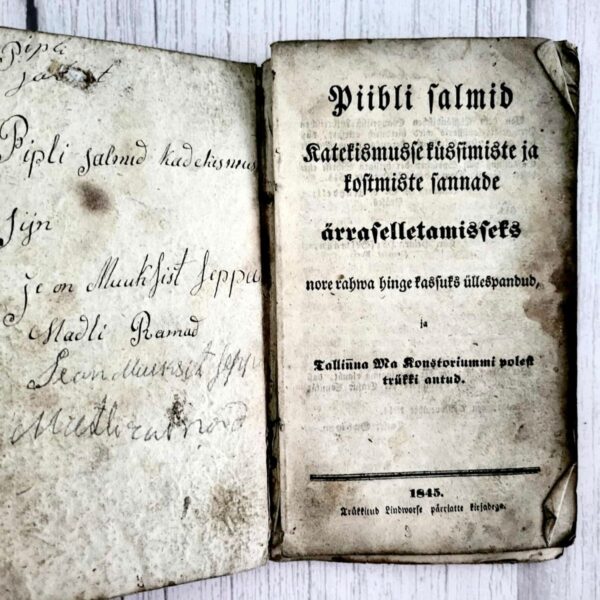 Pipa
Pipli salmid kadekismus
sijn
je on Muuksist Seppa
Madli Ramad
Se an Muuksit Sepp
Piibli salmid
Katekismusse küssimiste ja
kostmiste sannade
ärraselletamisseks
nore rahwa hinge kassuks üllespandud,
ja
Tallinna Ma Konstoriummi polest
trükki antud.
1845.
Trükkitud Lindworse pärriatte kirjadega.